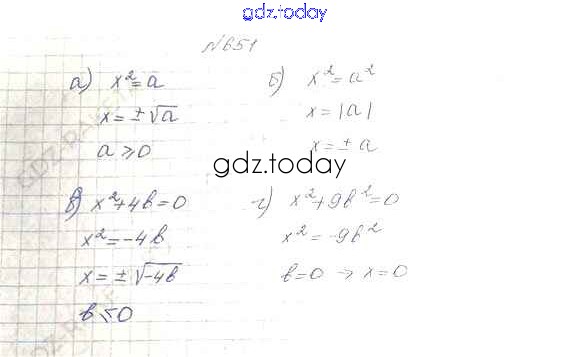 gdz.today
№651
а) x²=a
x=±√a
a⩾0
б) x²=a²
x=|a|
x=±a
gdz.today
в) x²+4b=0
x²=-4b
x=±√-4b
b⩽0
г) x²+9b²=0
x²=-9b²
b=0 → x=0